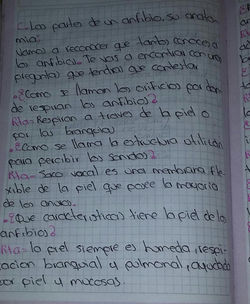 Los partes de un anfibio, su anato-
mia:
Vamos a reconocer que tanto conoce a
los anfibios. Te vas a encontrar con unas
preguntas que tendras que contestar
¿Como se llaman los orificios por don-
de respiran los anfibios?
Rta= Respiran a traves de la piel o
por las branquias
¿Como se llama la estructura utilizan
para percibir los sonidos?
Rta= Saco vocal es una membrana fle-
xible de la piel que posee la mayoria
de los anuros.
¿Que caracteristicas tiene la piel de los
anfibios?
Rta= la piel siempre es humeda, respi-
racion branquial y pulmonal, ayudado
por piel y mucosas.